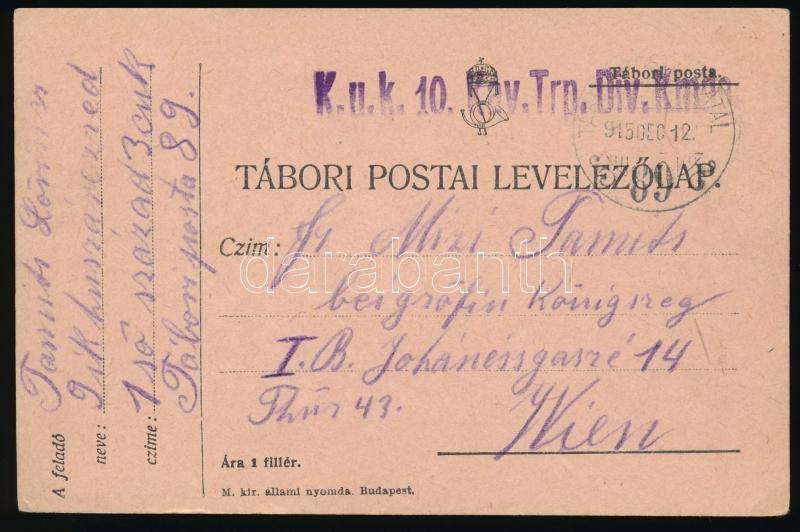 Tábori posta.
K.u.k. 10. Kav. Trp. Div. Kmdo
915 DEC 12.
89
TÁBORI POSTAI LEVELEZŐLAP.
Czim: Fr. Mizi Tamits
bei gräfin Königseg
I. B. Johánessgasse 14
Thür 43.
Wien
Ára 1 fillér.
M. kir. állami nyomda. Budapest.
A feladó
neve: Tamits
9ik huszárezred
czime: 1ső század 3 cuk
Tábori posta 89.
darabanth